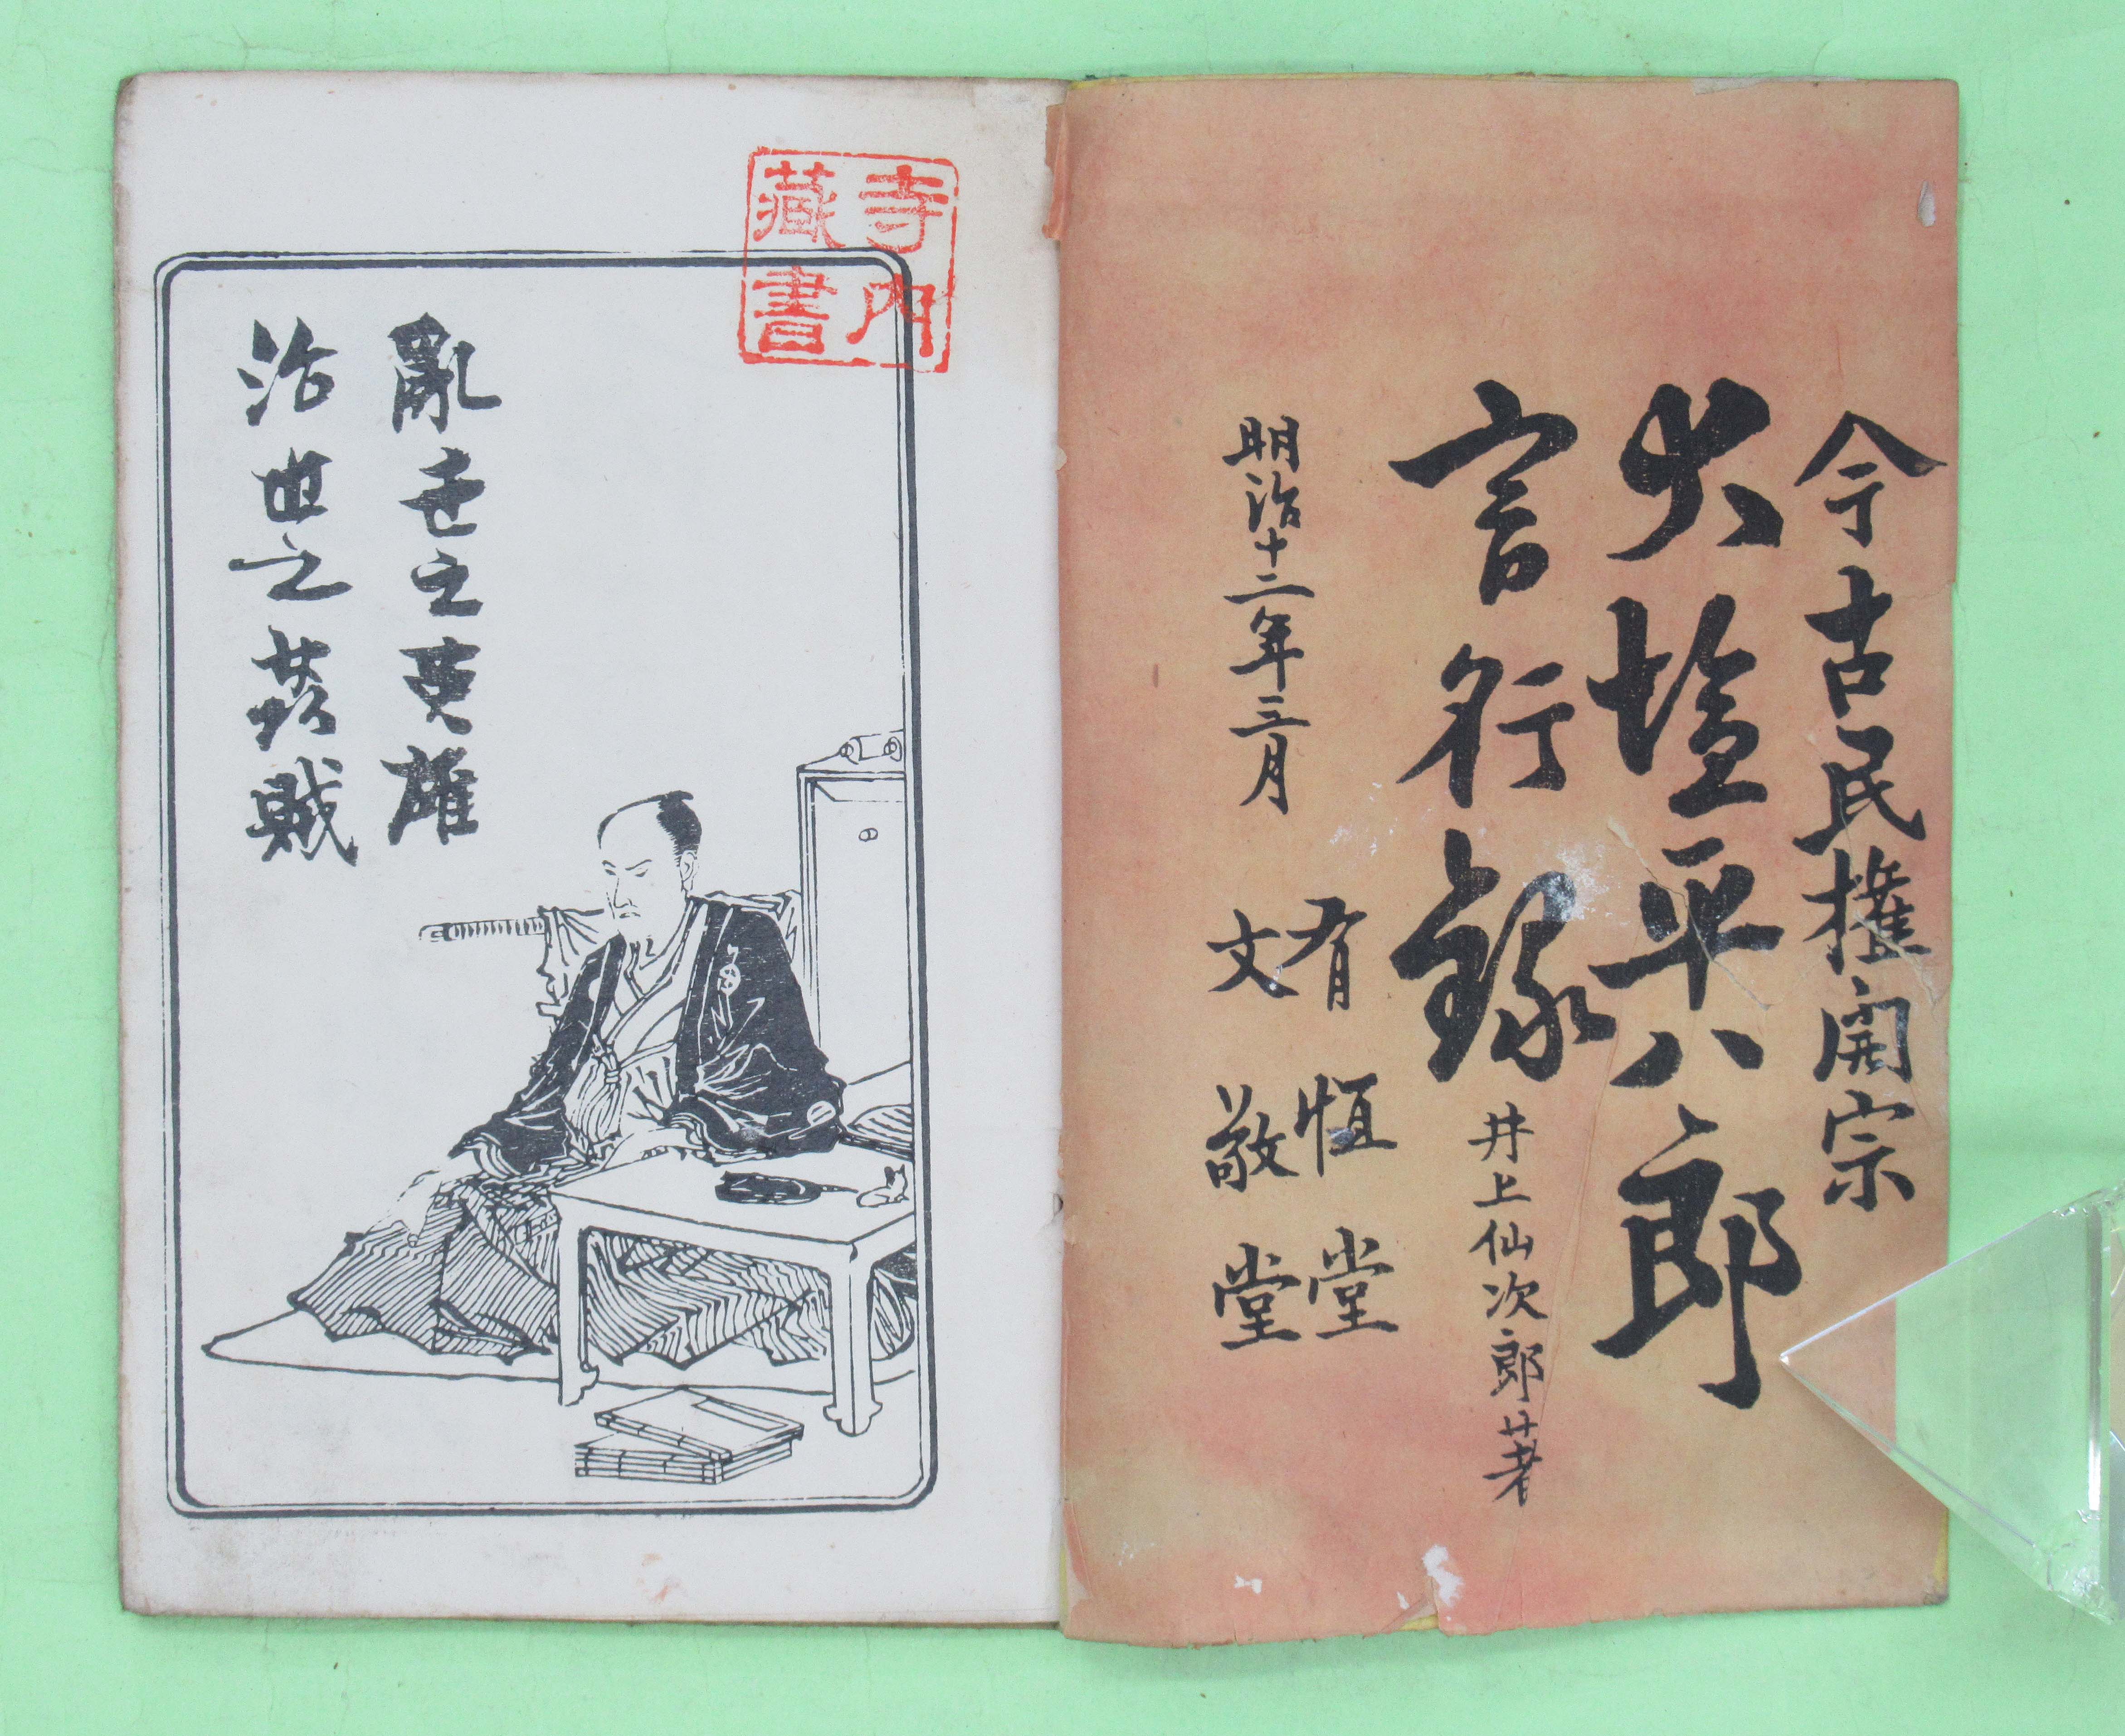 今古民権開宗
大塩平八郎
言行録
井上仙次郎著
明治十二年三月
有恒堂
文敬堂
寺内
藏書
亂世之英雄
治世之姦賊